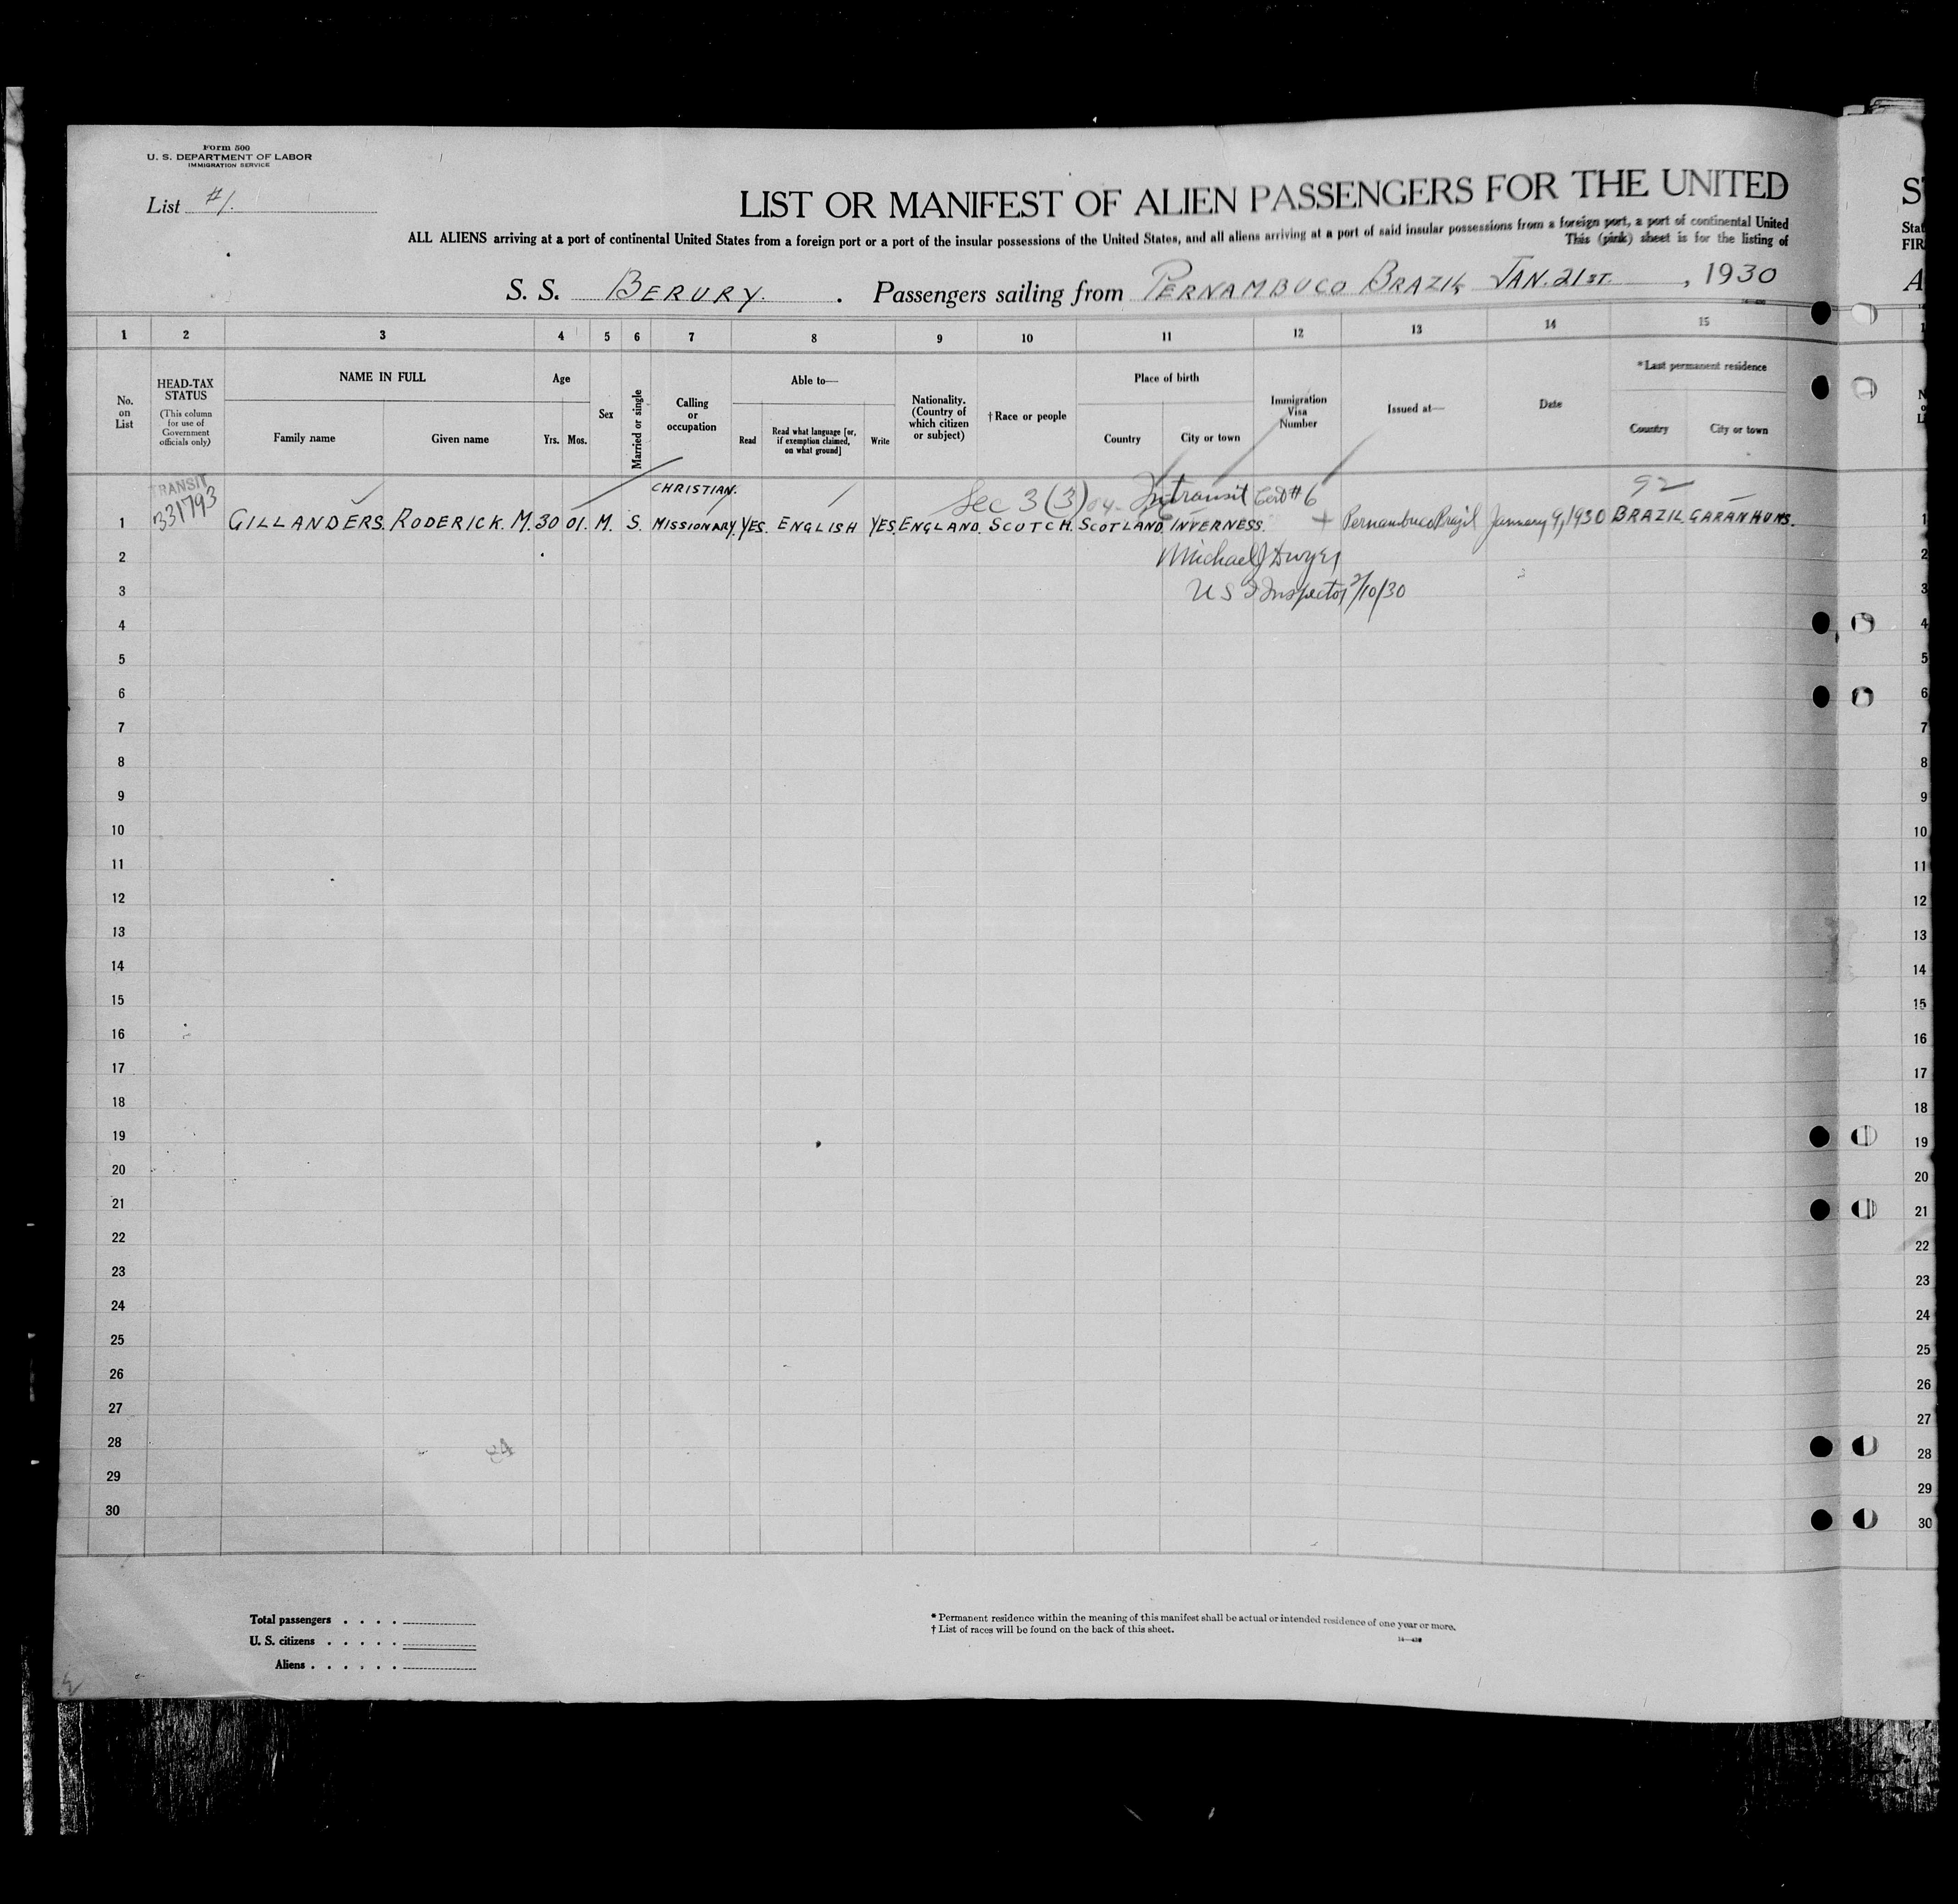 Form 500
U. S. DEPARTMENT OF LABOR
IMMIGRATION SERVICE
List #1.
LIST OR MANIFEST OF ALIEN PASSENGERS FOR THE UNITED
ALL ALIENS arriving at a port of continental United States from a foreign port or a port of the insular possessions of the United States, and all aliens arriving at a port of said insular possessions from a foreign port, a port of continental United
This (pink) sheet is for the listing of
S. S. BERURY. . Passengers sailing from PERNAMBUCO BRAZIL JAN. 21ST. , 1930
1 2 3 4 5 6 7 8 9 10 11 12 13 14 15
No. on List
HEAD-TAX STATUS
(This column for use of Government officials only)
NAME IN FULL
Family name Given name
Age
Yrs. Mos.
Sex
Married or single
Calling or occupation
Able to—
Read
Read what language [or, if exemption claimed, on what ground]
Write
Nationality. (Country of which citizen or subject)
† Race or people
Place of birth
Country City or town
Immigration Visa Number
Issued at—
Date
* Last permanent residence
Country City or town
TRANSIT
331793
CHRISTIAN.
Sec 3 (3) 04- In transit Cert # 6
92
1 GILLANDERS. RODERICK. M. 30 01. M. S. MISSIONARY. YES. ENGLISH YES. ENGLAND. SCOTCH. SCOTLAND. INVERNESS. Pernambuco Brazil January 9, 1930 BRAZIL GARANHUNS. 1
2 Michael J Dwyer 2
3 U S I Inspector 2/10/30 3
4 4
5 5
6 6
7 7
8 8
9 9
10 10
11 11
12 12
13 13
14 14
15 15
16 16
17 17
18 18
19 19
20 20
21 21
22 22
23 23
24 24
25 25
26 26
27 27
28 28
29 29
30 30
Total passengers . . . .
U. S. citizens . . . . .
Aliens . . . . . .
* Permanent residence within the meaning of this manifest shall be actual or intended residence of one year or more.
† List of races will be found on the back of this sheet.